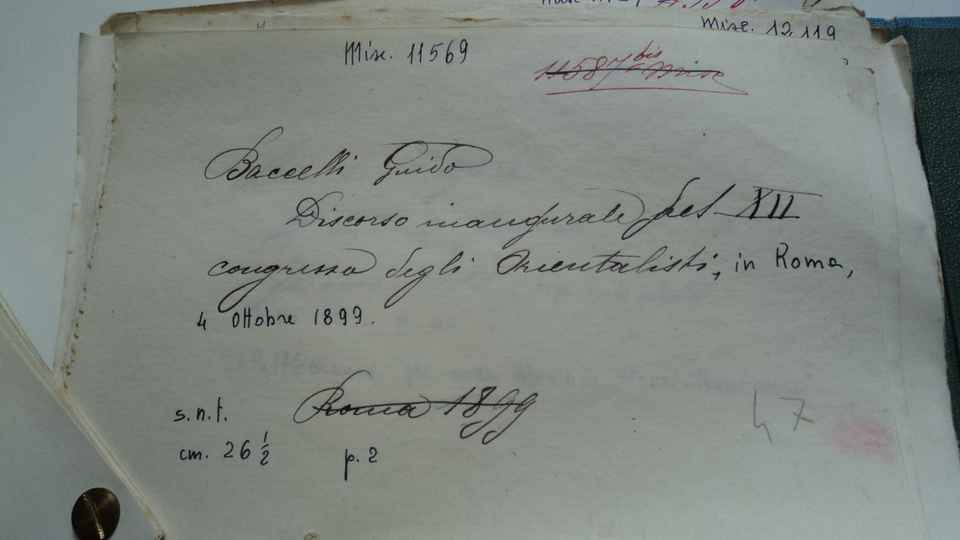 Misc. 12.119
Misc. 11569
11587 bis Misc
Baccelli Guido
Discorso inaugurale del XII
congresso degli Orientalisti, in Roma,
4 Ottobre 1899.
s.n.t. Roma 1899
cm. 26 1/2 p. 2
47